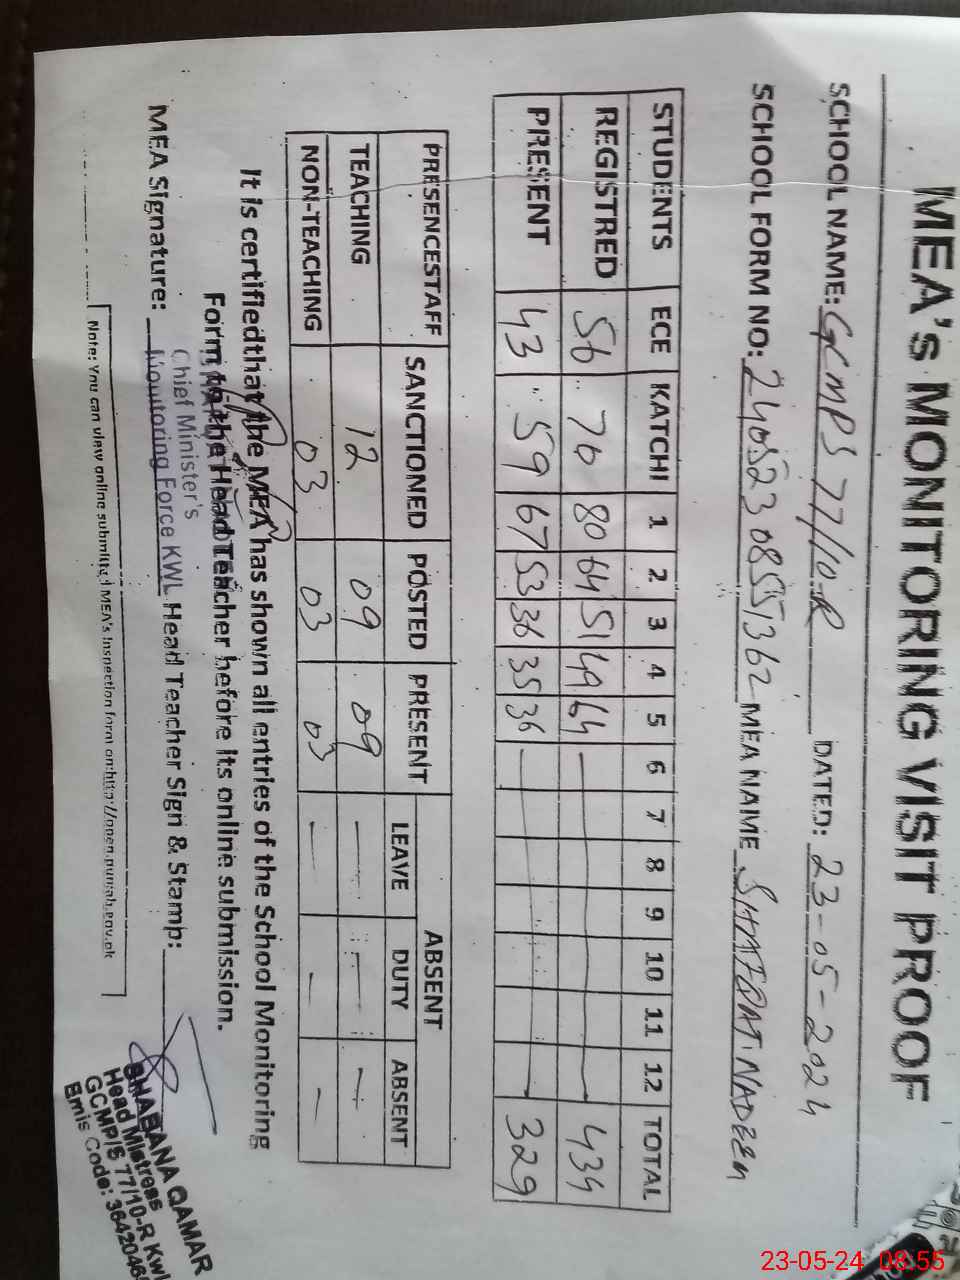 MEA's MONITORING VISIT PROOF
SCHOOL NAME: GCMPS 77/10-R DATED: 23-05-2024
SCHOOL FORM NO: 24052308551362 MEA NAME SHAFQAT NADEEM
STUDENTS ECE KATCHI 1 2 3 4 5 6 7 8 9 10 11 12 TOTAL
REGISTRED 56 70 80 64 51 49 64 434
PRESENT 43 59 67 53 36 35 36 329
PRESENCESTAFF SANCTIONED POSTED PRESENT ABSENT
LEAVE DUTY ABSENT
TEACHING 12 09 09 — — —
NON-TEACHING 03 03 03 — — —
It is certifiedthat the MEA has shown all entries of the School Monitoring
Form to the Head Teacher before its online submission.
Chief Minister's
Monitoring Force KWL
MEA Signature: Head Teacher Sign & Stamp:
SHABANA QAMAR
Head Mistress
GCMP/S 77/10-R Kwl
Emis Code: 3642046
Note: You can view online submitted MEA's Inspection form on:http://open.punjab.gov.pk
23-05-24 08:55